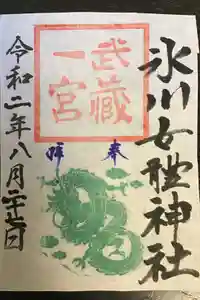 氷川女體神社
武藏
一宮
奉
拝
令和二年八月